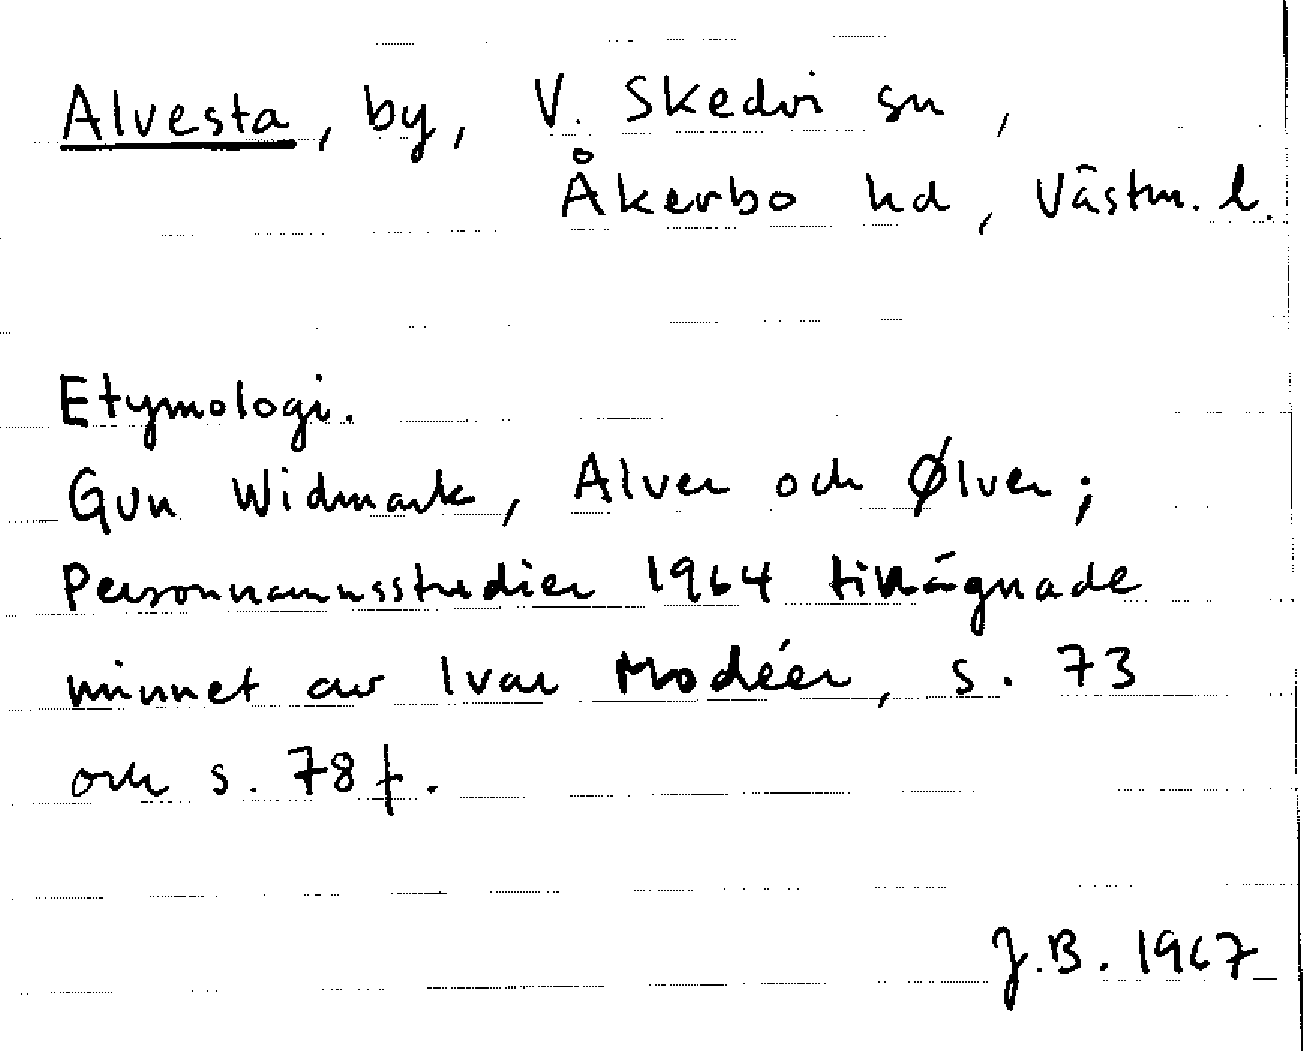 Alvesta, by, V. Skedvi sn,
Åkerbo hd, Västm. l.
Etymologi.
Gun Widmark, Alver och Ølver;
Personnamnsstudier 1964 tillägnade
minnet av Ivar Modéer, s. 73
och s. 78 f.
J.B. 1967